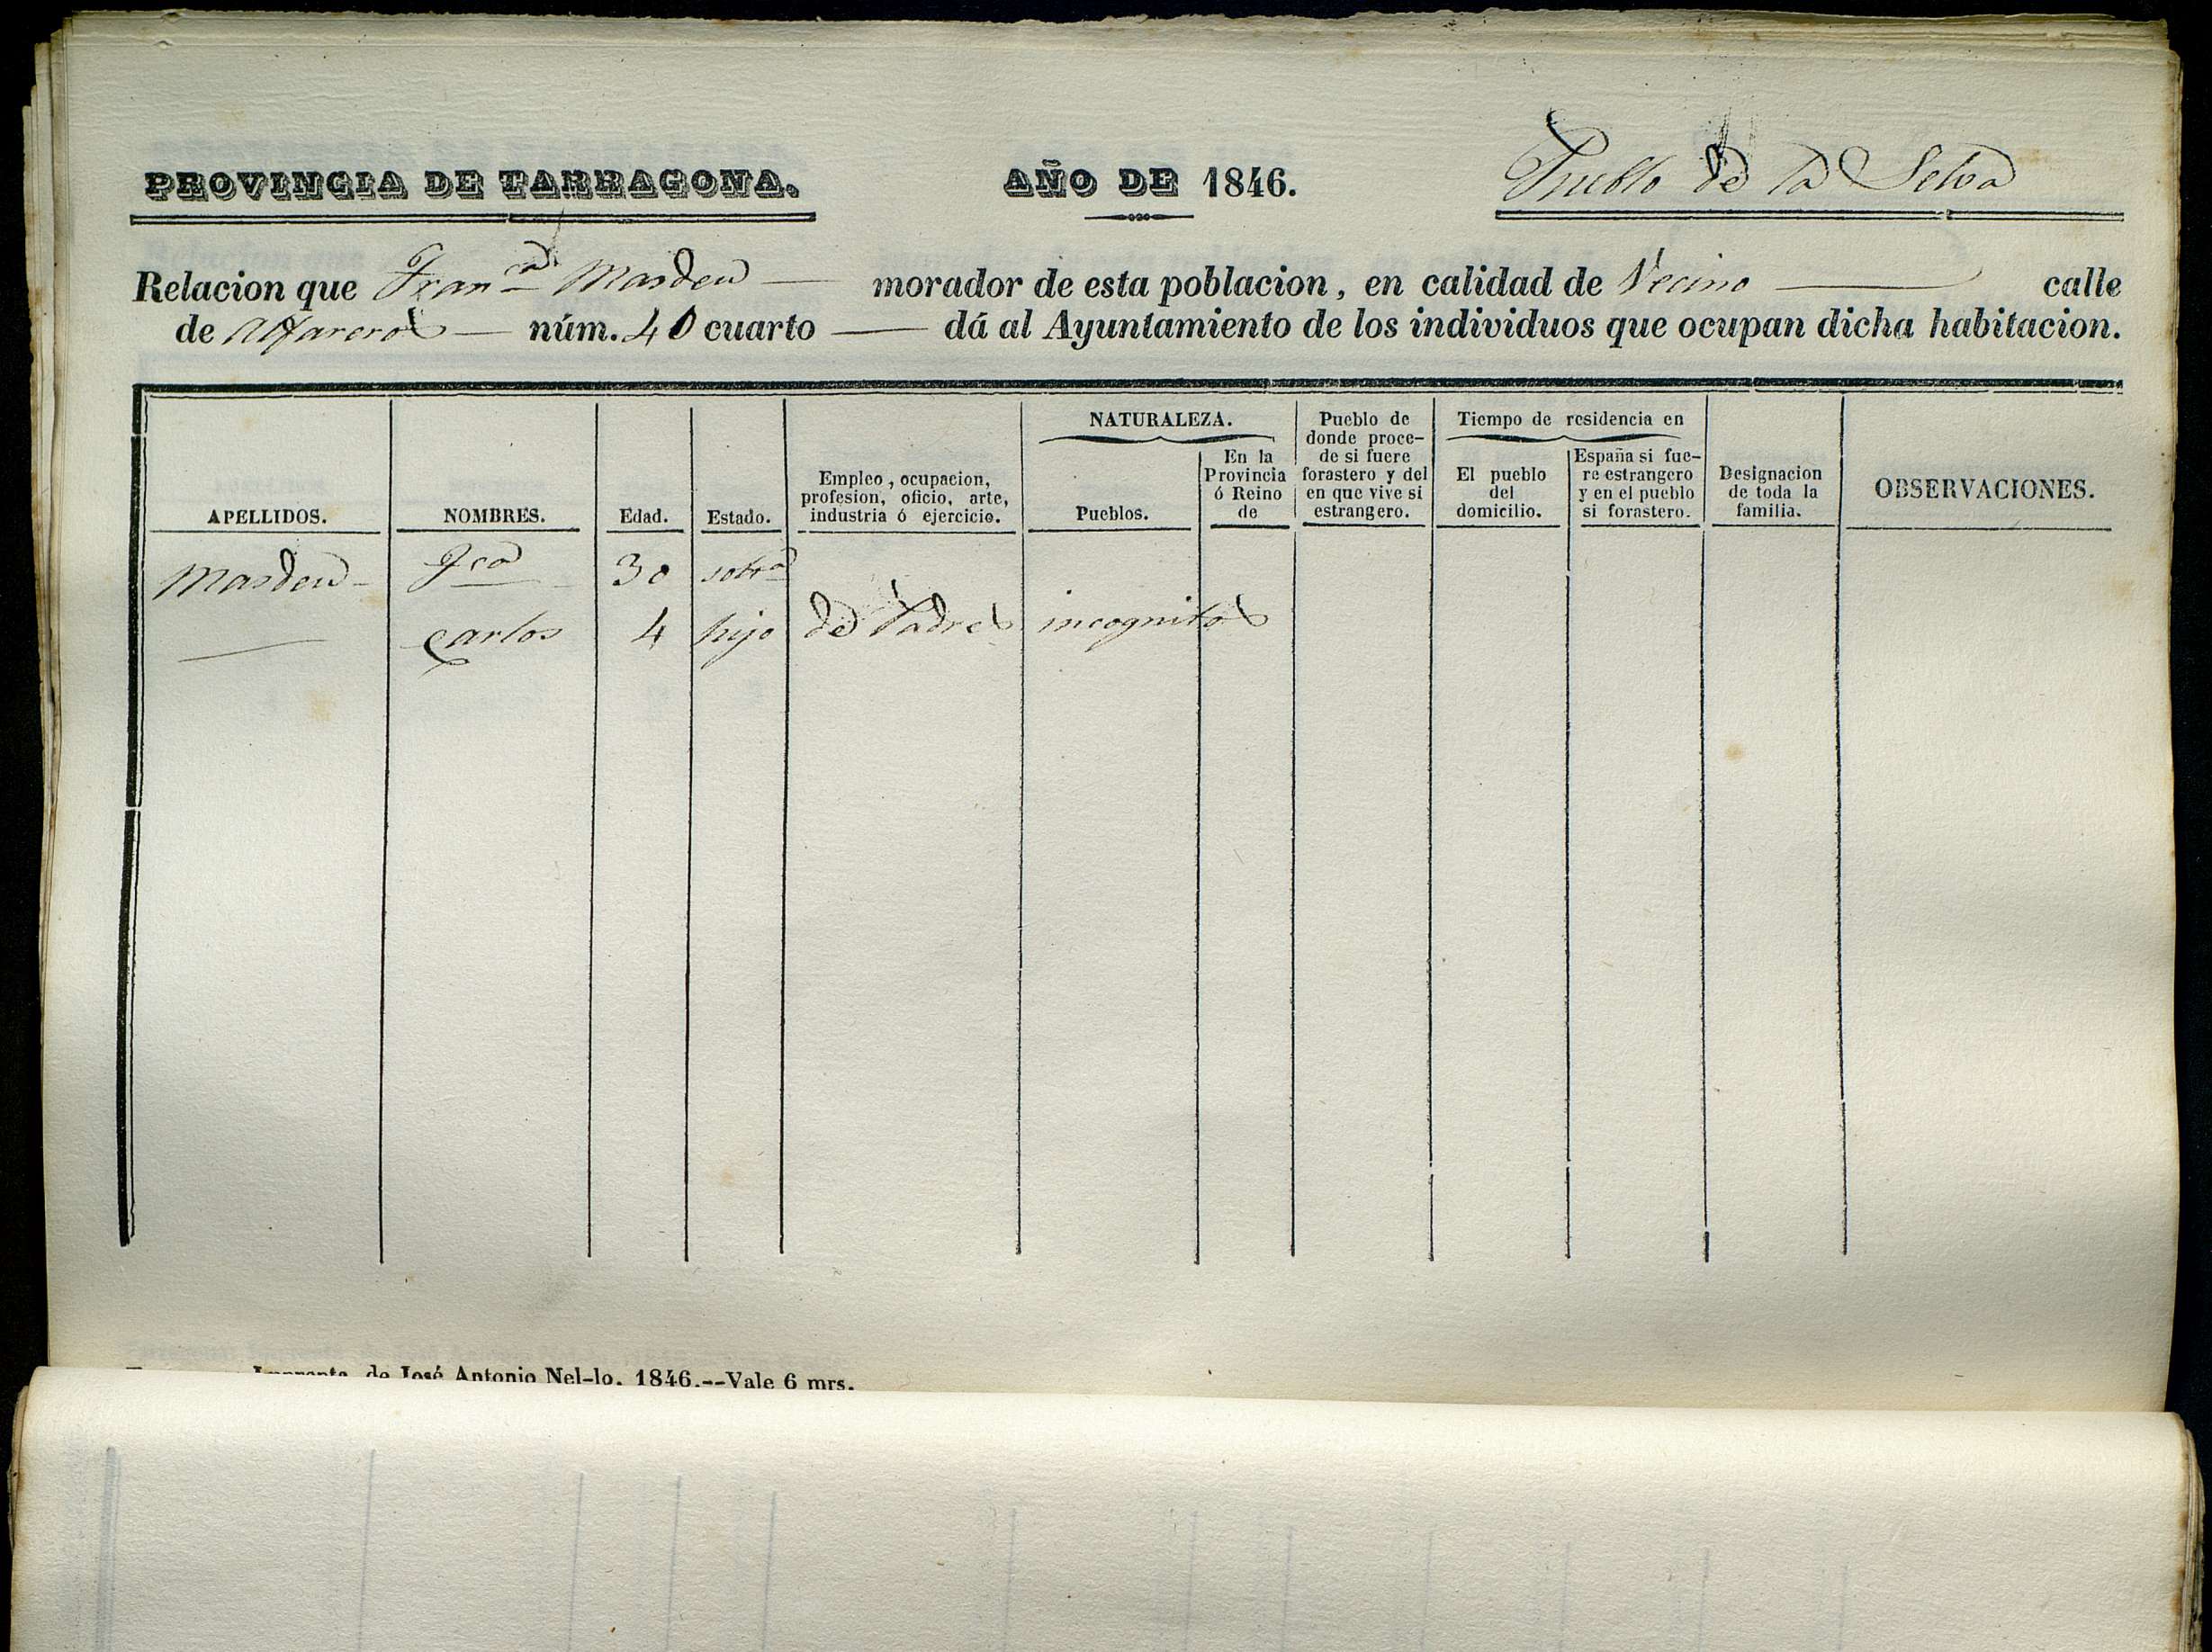 PROVINCIA DE TARRAGONA. AÑO DE 1846. Pueblo de la Selva
Relacion que Fran.ca Masdeu — morador de esta poblacion, en calidad de Vecino — calle
de Alfareros — núm. 40 cuarto — dá al Ayuntamiento de los individuos que ocupan dicha habitacion.
APELLIDOS.
NOMBRES.
Edad.
Estado.
Empleo, ocupacion,
profesion, oficio, arte,
industria ó ejercicio.
NATURALEZA.
Pueblos.
En la
Provincia
ó Reino
de
Pueblo de
donde proce-
de si fuere
forastero y del
en que vive si
estrangero.
Tiempo de residencia en
El pueblo
del
domicilio.
España si fue-
re estrangero
y en el pueblo
si forastero.
Designacion
de toda la
familia.
OBSERVACIONES.
Masdeu — Fca 30 solt.a
— Carlos 4 hijo de Padres incognitos
Imprenta de José Antonio Nel-lo. 1846.--Vale 6 mrs.